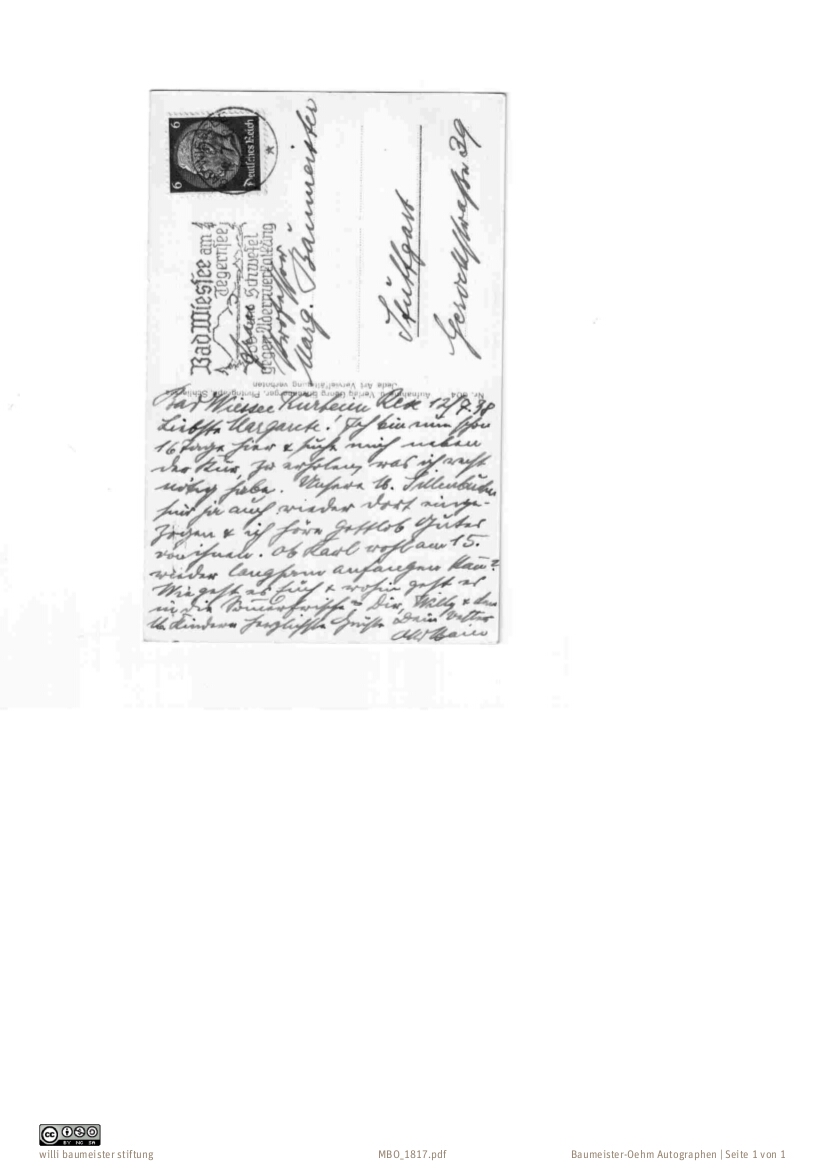 6 6
Deutsches Reich
Bad Wiessee am
Tegernsee
Jod und Schwefel
gegen Adernverkalkung
Frau
Professor
Marg. Baumeister
Stuttgart
Gerokstraße 39
Jede Art Vervielfältigung verboten
Bad Wiessee Kurheim Rex 12/7.38
Liebste Margarete! Ich bin nun schon
16 Tage hier & suche mich neben
der Kur, zu erholen, was ich recht
nötig habe. Unsere lb. Sillenbucher
sind ja auch wieder dort einge-
zogen & ich höre Gottlob Gutes
von ihnen. Ob Karl wohl am 15.
wieder langsam anfangen kann?
Wie geht es Euch & wohin geht es
in die Sommerfrische? Dir, Willy & den
lb. Kindern herzlichste Grüße Dein Vetter
BY NC SA
willi baumeister stiftung
MBO_1817.pdf
Baumeister-Oehm Autographen | Seite 1 von 1